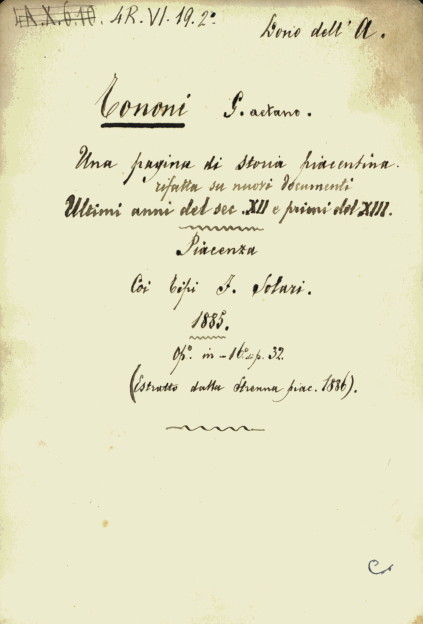 4A.X.6.10. 4R.VI.19.2°
Dono dell'A.
Tononi G.aetano.
Una pagina di storia piacentina.
rifatta su nuovi documenti
Ultimi anni del sec. XII e primi del XIII.
Piacenza
Coi Tipi F. Solari.
1885.
Op°. in-16° p. 32.
(Estratto dalla Strenna piac. 1886).